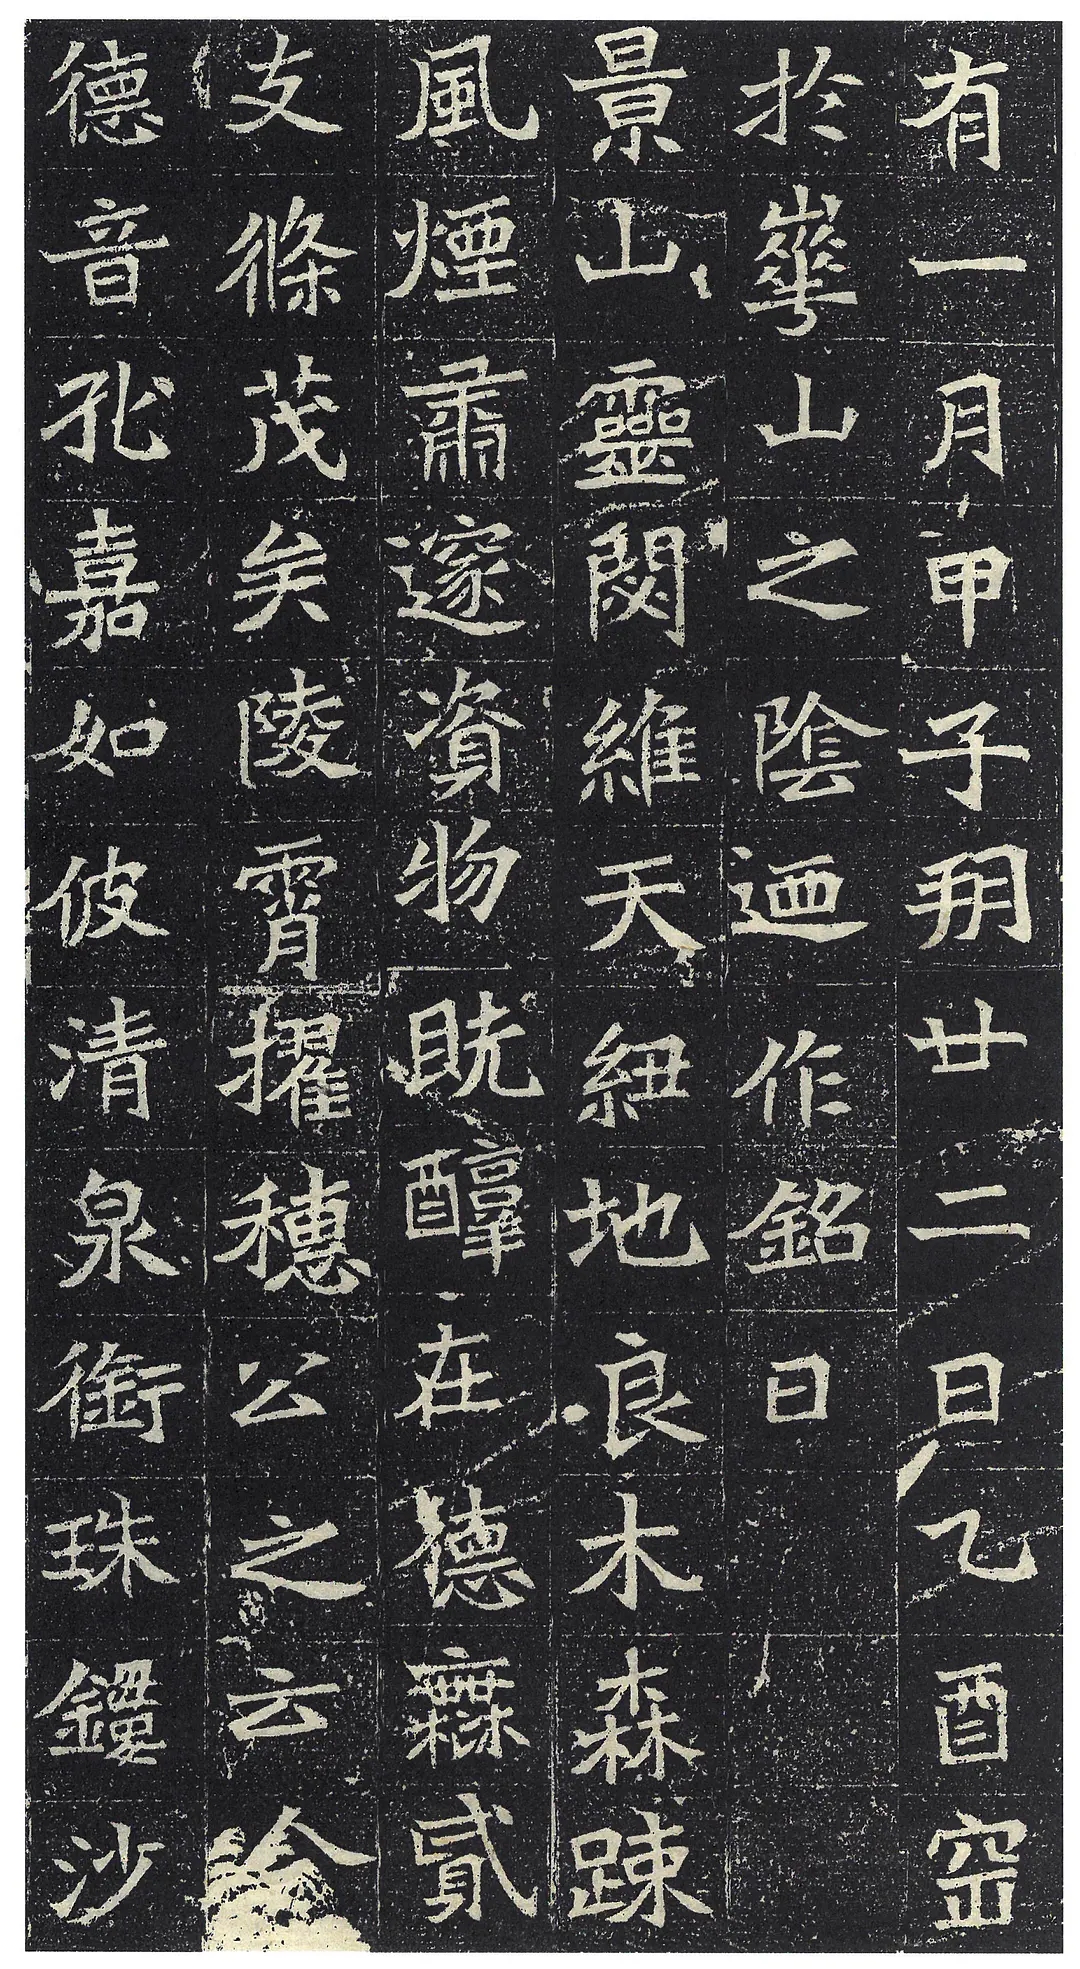 有一月甲子朔廿二日乙酉窆
於華山之陰迺作銘曰
景山靈閟維天紐地良木森踈
風煙肅邃資物既醇在德無貳
支條茂矣陵霄擢穗公之云令
德音孔嘉如彼清泉銜珠鏤沙